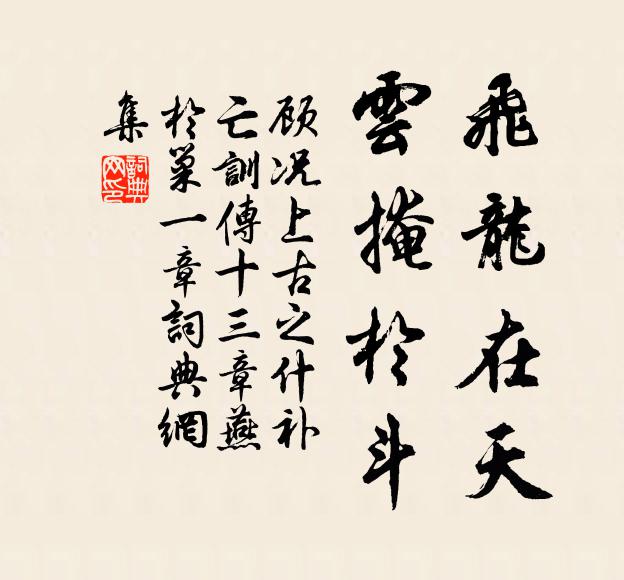 飛龍在天
雲掩於斗
顾况上古之什补
亡訓傳十三章燕
於巢一章詞典網
集
詞典
网印